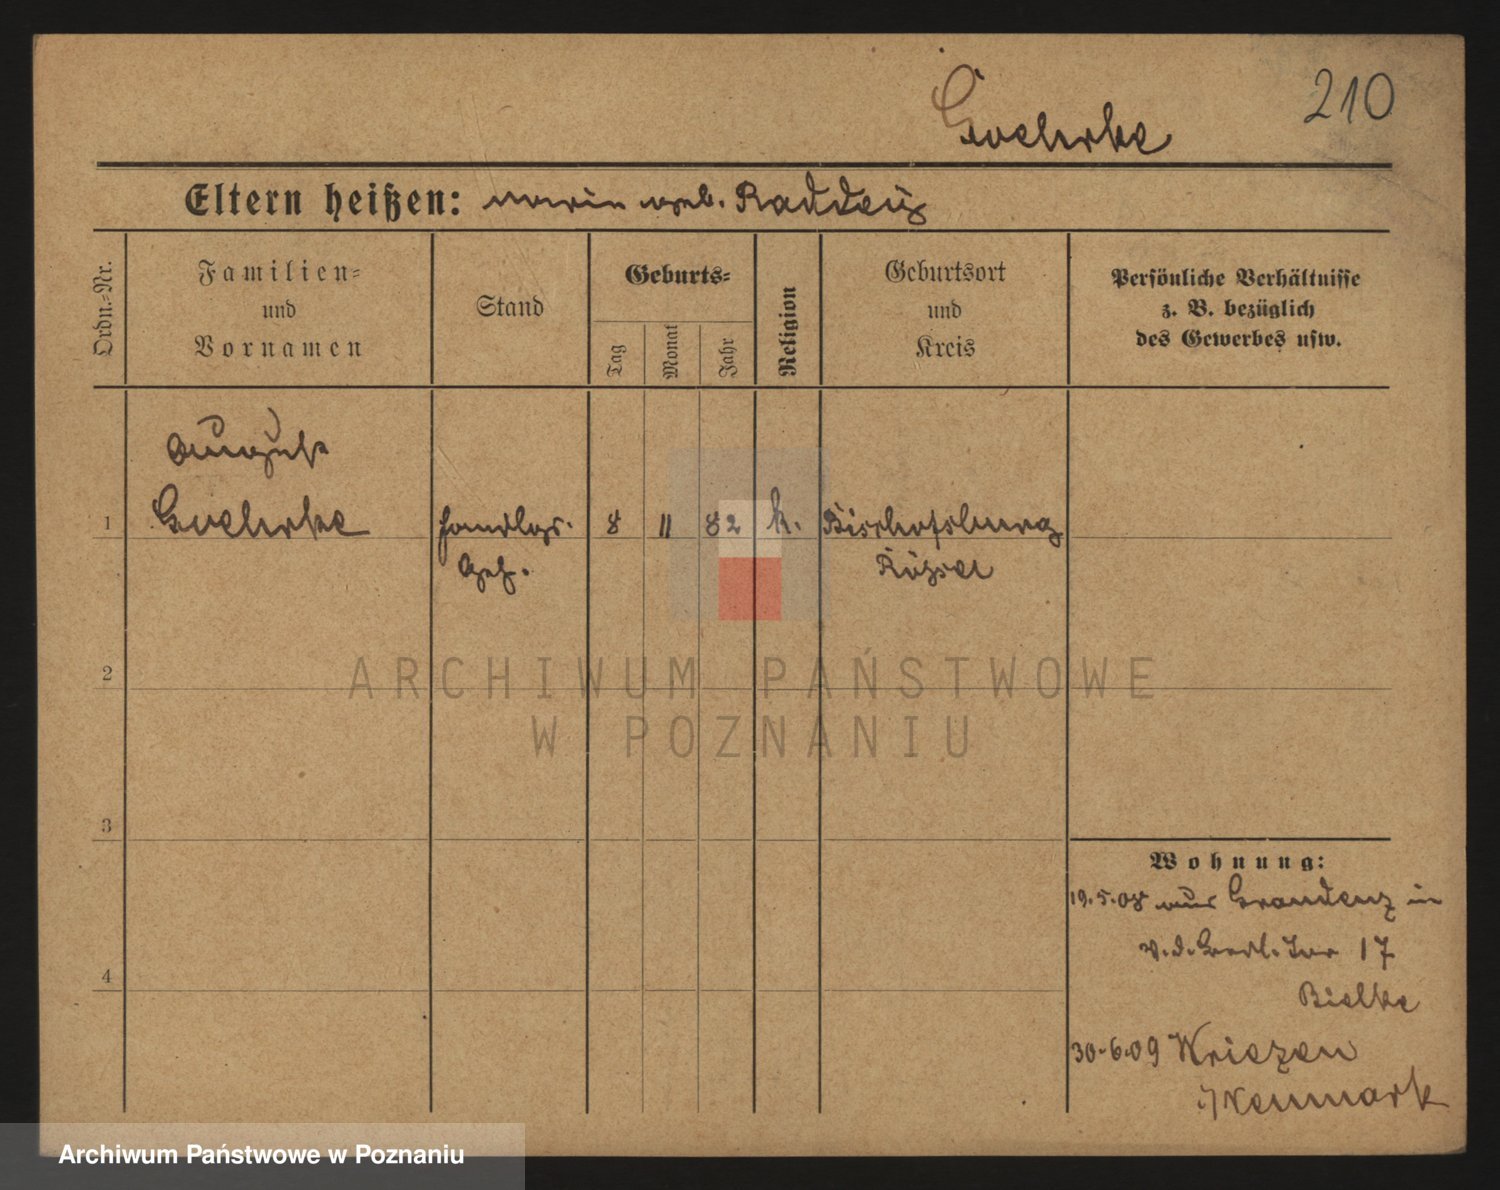 210
Goehrke
Eltern heißen: geb. Raddeiz
Ordn.-Nr.
Familien-
und
Vornamen
Stand
Geburts-
Tag
Monat
Jahr
Religion
Geburtsort
und
Kreis
Persönliche Verhältnisse
z. B. bezüglich
des Gewerbes usw.
August
1 Goehrke Handlgs. 8 11 82 k. Bischofsburg
Geh. Rössel
2
3
4
Wohnung:
19.5.08 aus Graudenz in
v. d. Berl. Tor 17
Bielke
30.6.09 Wriezen
i/Neumark
ARCHIWUM PAŃSTWOWE
W POZNANIU
Archiwum Państwowe w Poznaniu